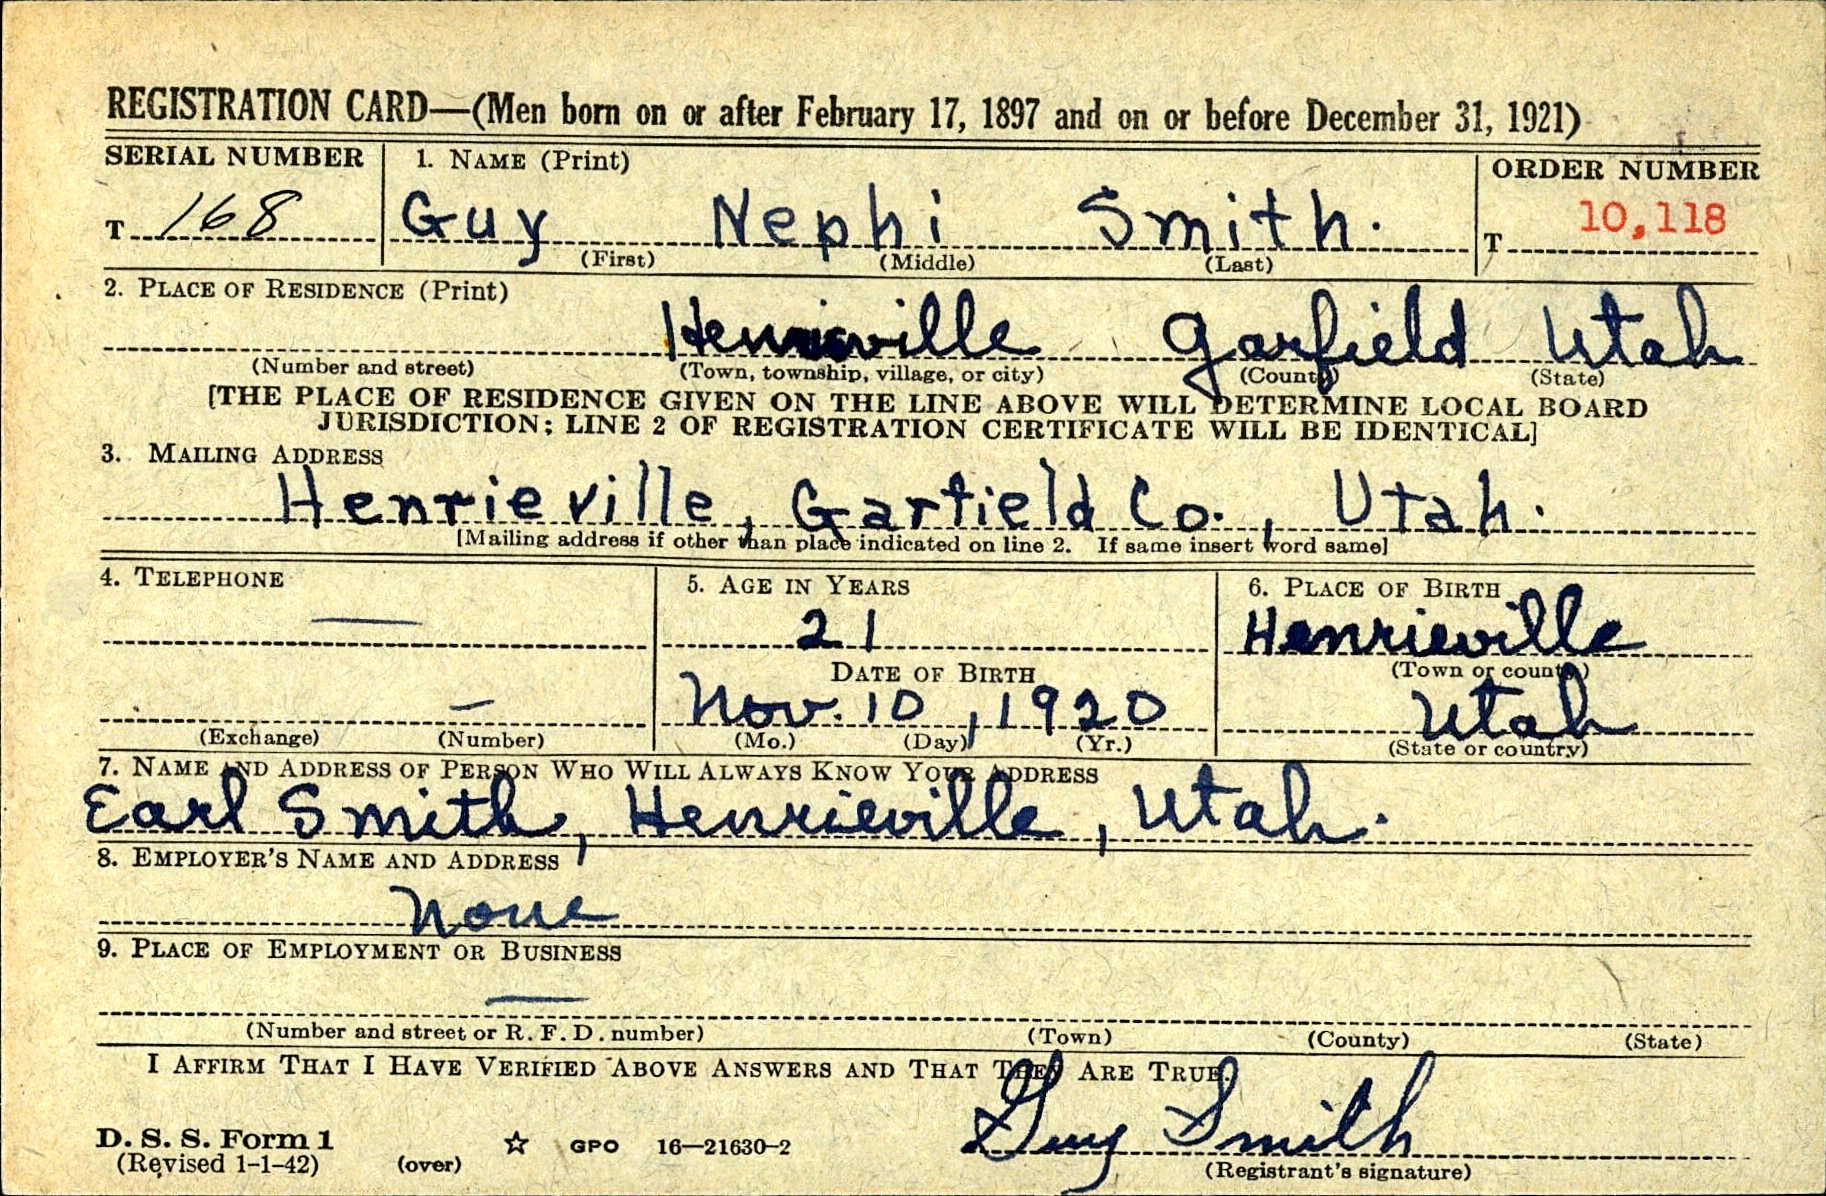 REGISTRATION CARD—(Men born on or after February 17, 1897 and on or before December 31, 1921)
SERIAL NUMBER 1. NAME (Print) ORDER NUMBER
T 168 Guy Nephi Smith. T 10,118
(First) (Middle) (Last)
2. PLACE OF RESIDENCE (Print)
Henrieville Garfield Utah
(Number and street) (Town, township, village, or city) (County) (State)
[THE PLACE OF RESIDENCE GIVEN ON THE LINE ABOVE WILL DETERMINE LOCAL BOARD
JURISDICTION; LINE 2 OF REGISTRATION CERTIFICATE WILL BE IDENTICAL]
3. MAILING ADDRESS
Henrieville, Garfield Co., Utah.
[Mailing address if other than place indicated on line 2. If same insert word same]
4. TELEPHONE 5. AGE IN YEARS 6. PLACE OF BIRTH
— 21 Henrieville
DATE OF BIRTH (Town or county)
— Nov. 10, 1920 Utah
(Exchange) (Number) (Mo.) (Day) (Yr.) (State or country)
7. NAME AND ADDRESS OF PERSON WHO WILL ALWAYS KNOW YOUR ADDRESS
Earl Smith, Henrieville, Utah.
8. EMPLOYER'S NAME AND ADDRESS
None
9. PLACE OF EMPLOYMENT OR BUSINESS
—
(Number and street or R. F. D. number) (Town) (County) (State)
I AFFIRM THAT I HAVE VERIFIED ABOVE ANSWERS AND THAT THEY ARE TRUE.
Guy Smith
D. S. S. Form 1
(Revised 1-1-42) (over) ☆ GPO 16—21630-2 (Registrant's signature)